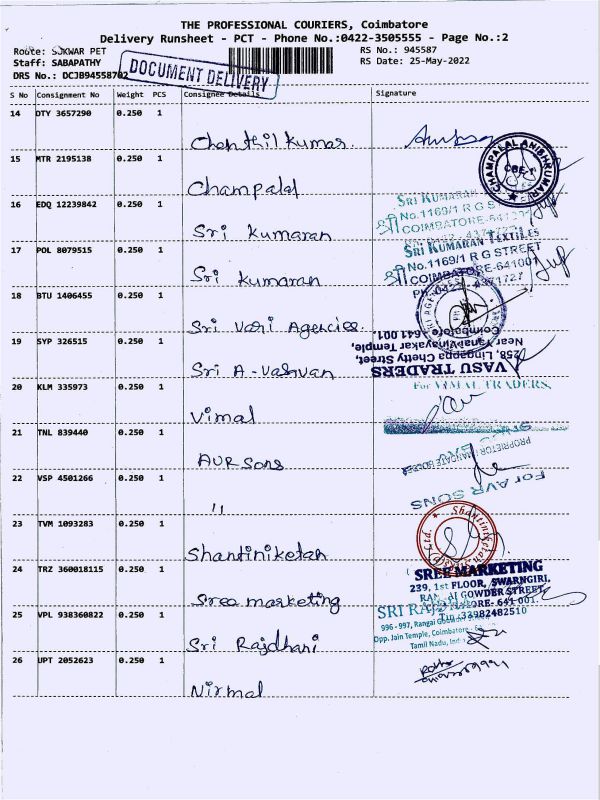 THE PROFESSIONAL COURIERS, Coimbatore
Delivery Runsheet - PCT - Phone No.:0422-3505555 - Page No.:2
Route: SUKWAR PET
RS No.: 945587
Staff: SABAPATHY
RS Date: 25-May-2022
DRS No.: DCJB94558702
DOCUMENT DELIVERY
S No Consignment No Weight PCS Consignee Details Signature
14 DTY 3657290 0.250 1
Chenthil kumar.
15 MTR 2195138 0.250 1
CHAMPALAL
CBE-1
Champalal
16 EDQ 12239842 0.250 1
SRI KUMARAN
No.1169/1 R G S
COIMBATORE-641
Sri kumaran
17 POL 8079515 0.250 1
SRI KUMARAN TEXTILES
No.1169/1 R G STREET
COIMBATORE-641001
Sri kumaran
18 BTU 1406455 0.250 1
Sri Vari Agencies.
19 SYP 326515 0.250 1
VASU TRADERS
258, Lingappa Chetty Street,
Near Vinayakar Temple,
Coimbatore 641 001.
Sri A-Vashvan
20 KLM 335973 0.250 1
For VIMAL TRADERS
Vimal
21 TNL 839440 0.250 1
PROPRIETOR
AVR Sons
22 VSP 4501266 0.250 1
For AVR SONS
"
23 TVM 1093283 0.250 1
Shantiniketan
Shantiniketan
24 TRZ 360018115 0.250 1
SREE MARKETING
239, 1st FLOOR, SWARNGIRI,
GOWDER STREET,
ORE- 641 001.
33982482510
Sree marketing
25 VPL 938360822 0.250 1
SRI RAJ
996 - 997, Rangai
Opp. Jain Temple, Coimbatore
Tamil Nadu,
Sri Rajdhani
26 UPT 2052623 0.250 1
Nirmal